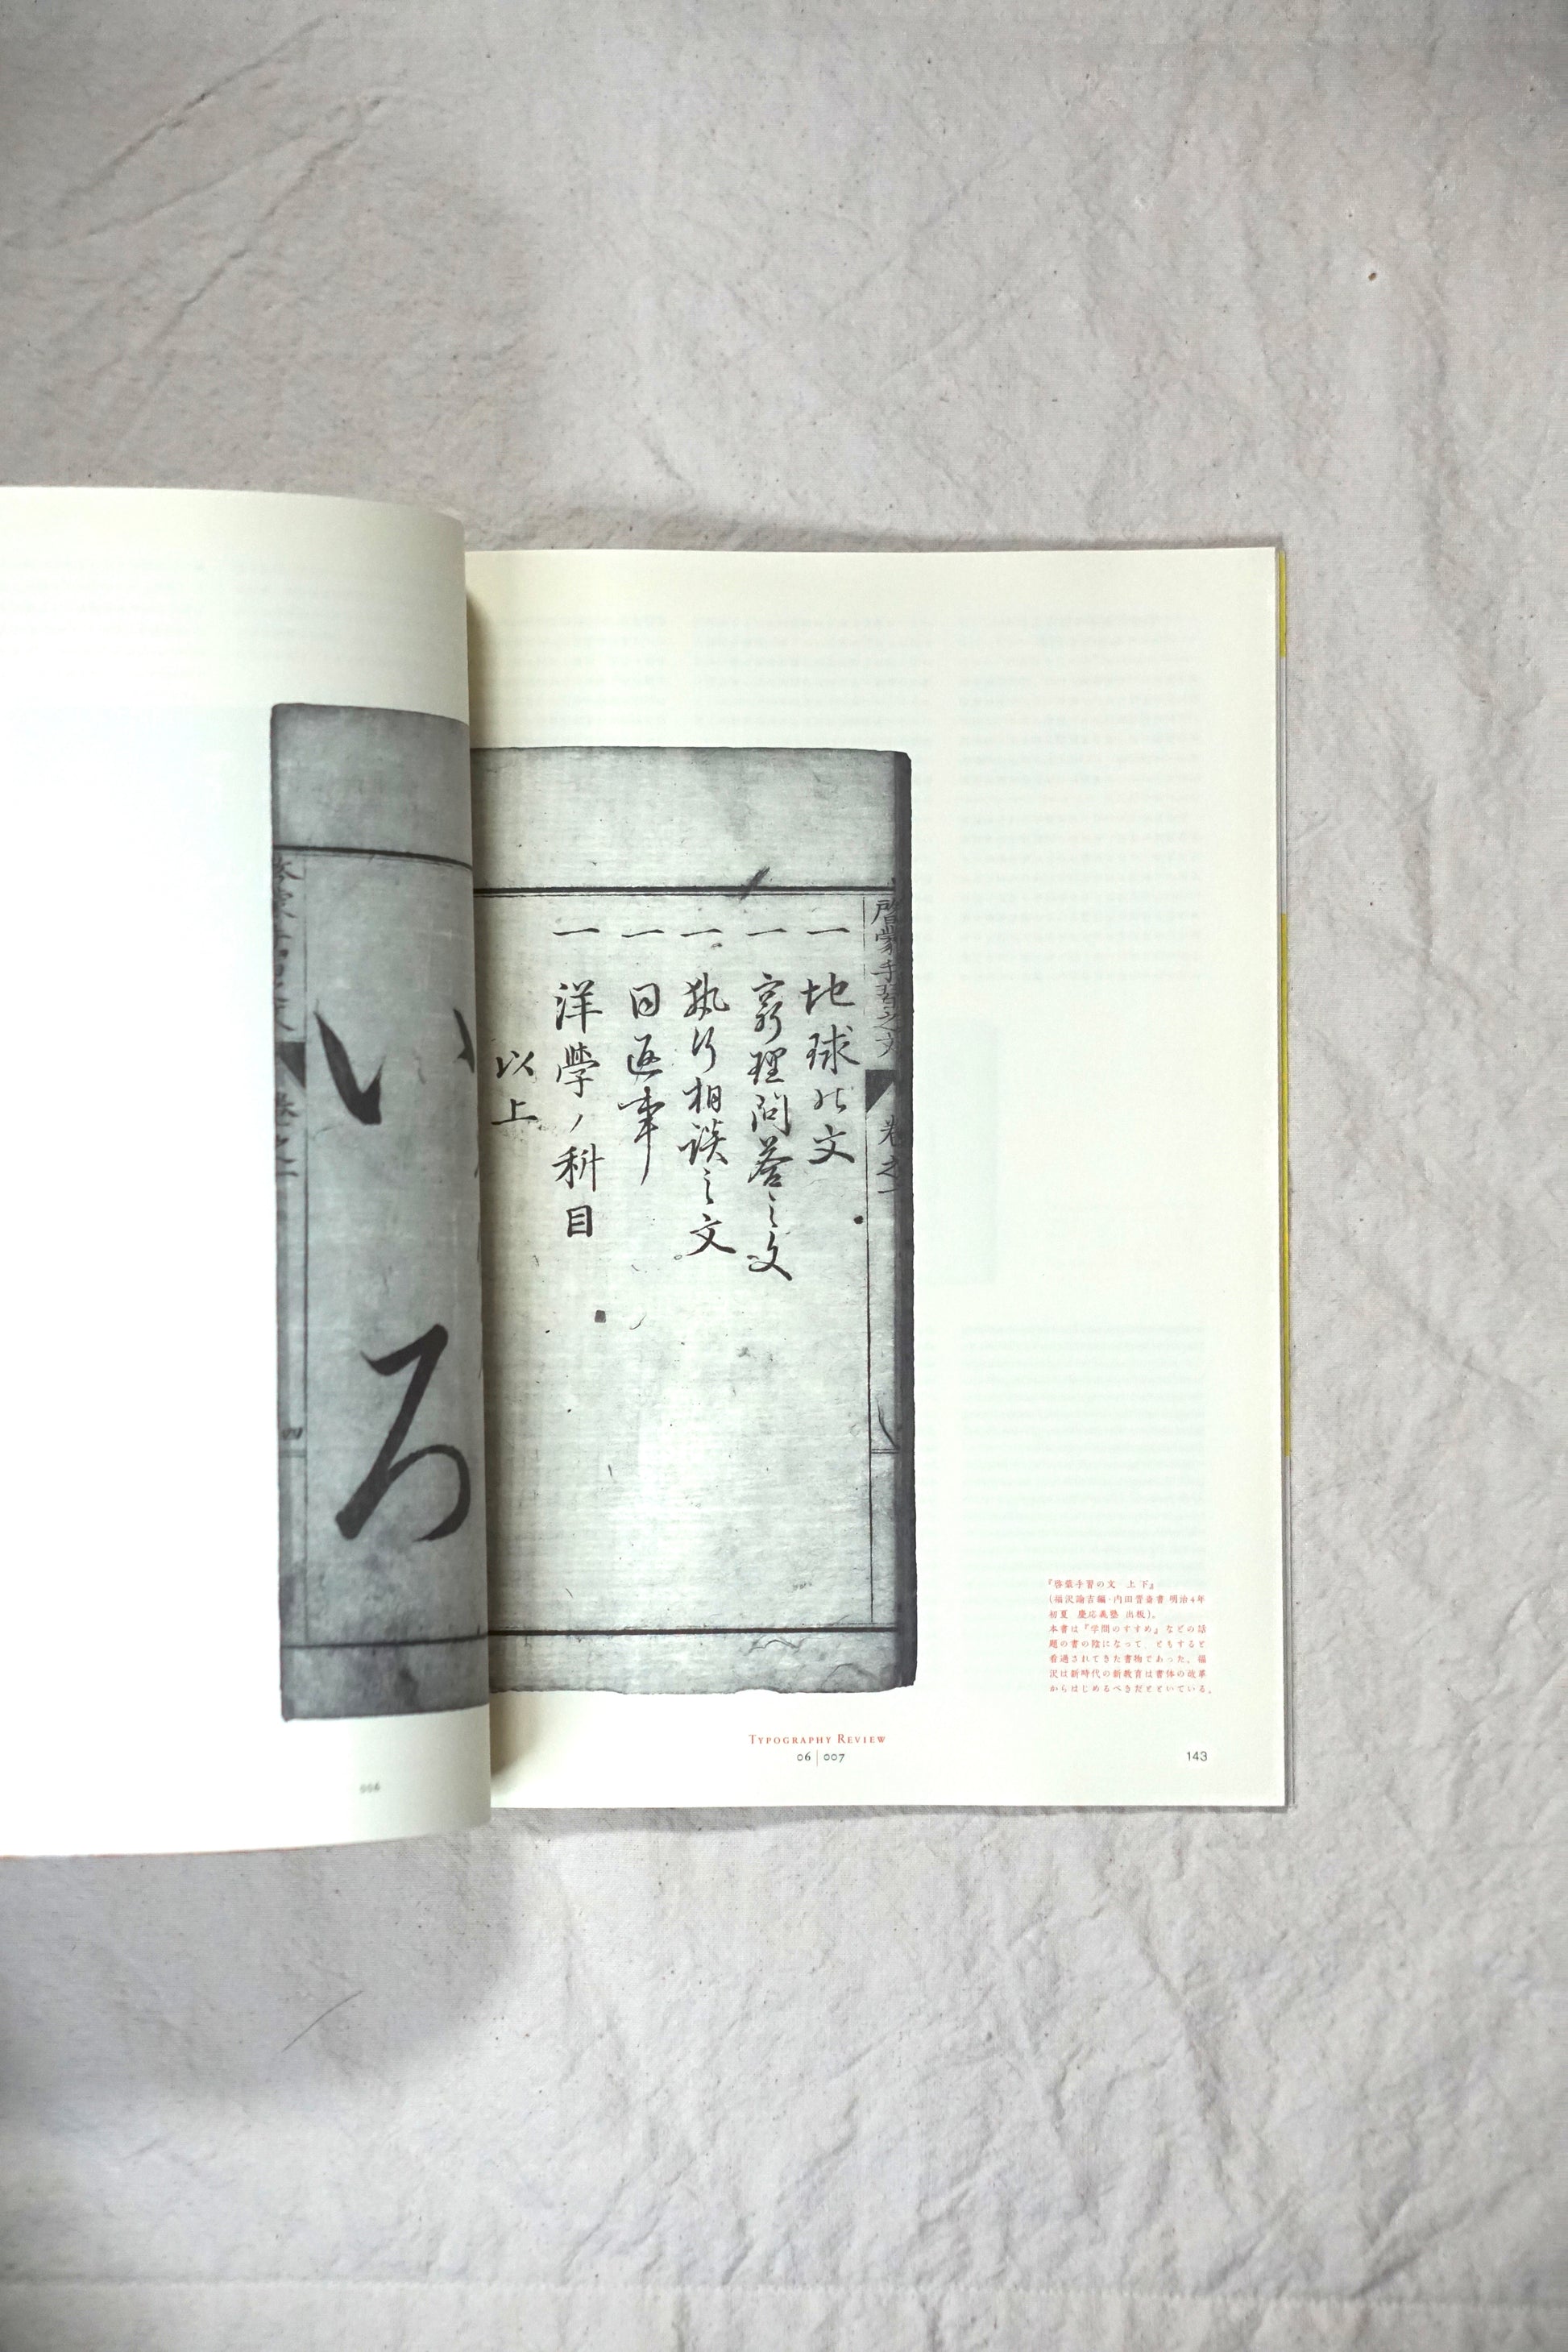 啓蒙手習之文
巻之一
一 地球の文
一 窮理問答之文
一 執行相談之文
一 同返事
一 洋學ノ科目
以上
いろ
四
『啓蒙手習の文 上下』
(福沢諭吉編・内田晋斎書 明治4年
初夏 慶応義塾 出板)。
本書は『学問のすすめ』などの話
題の書の陰になって、ともすると
看過されてきた書物であった。福
沢は新時代の新教育は書体の改革
からはじめるべきだとといている。
TYPOGRAPHY REVIEW
06 | 007
143